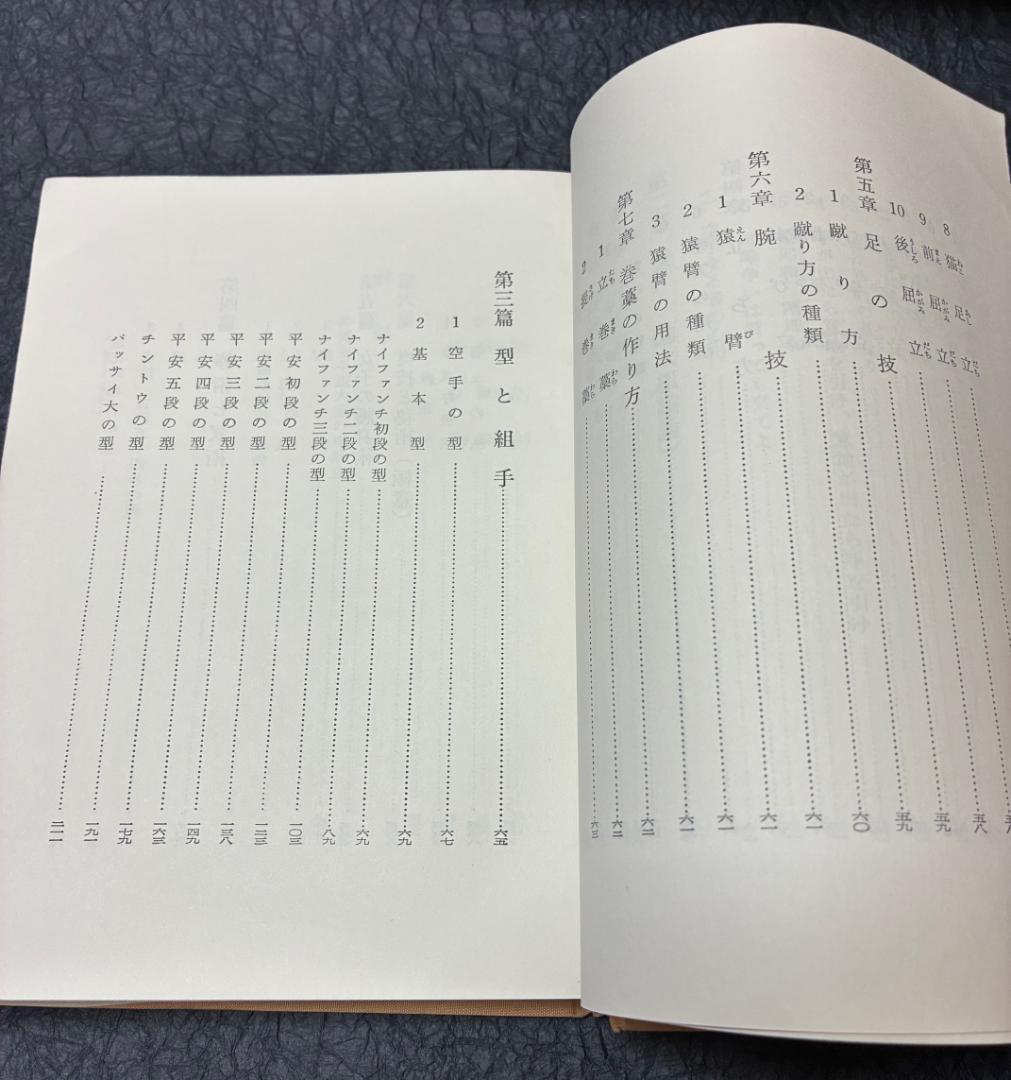 8 猫足立 五八
9 前屈立 五八
10 後屈立 五九
第五章 足の技 五九
1 蹴り方 六〇
2 蹴り方の種類 六一
第六章 腕技 六一
1 猿臂 六一
2 猿臂の種類 六一
3 猿臂の用法 六二
第七章 巻藁の作り方 六二
1 立巻藁 六三
2 提巻藁
第三篇 型と組手 六五
1 空手の型 六七
2 基本型 六九
ナイファンチ初段の型 六九
ナイファンチ二段の型 八九
ナイファンチ三段の型 一〇三
平安初段の型 一二三
平安二段の型 一三八
平安三段の型 一四九
平安四段の型 一六三
平安五段の型 一七九
チントウの型 一九一
バッサイ大の型 二一一